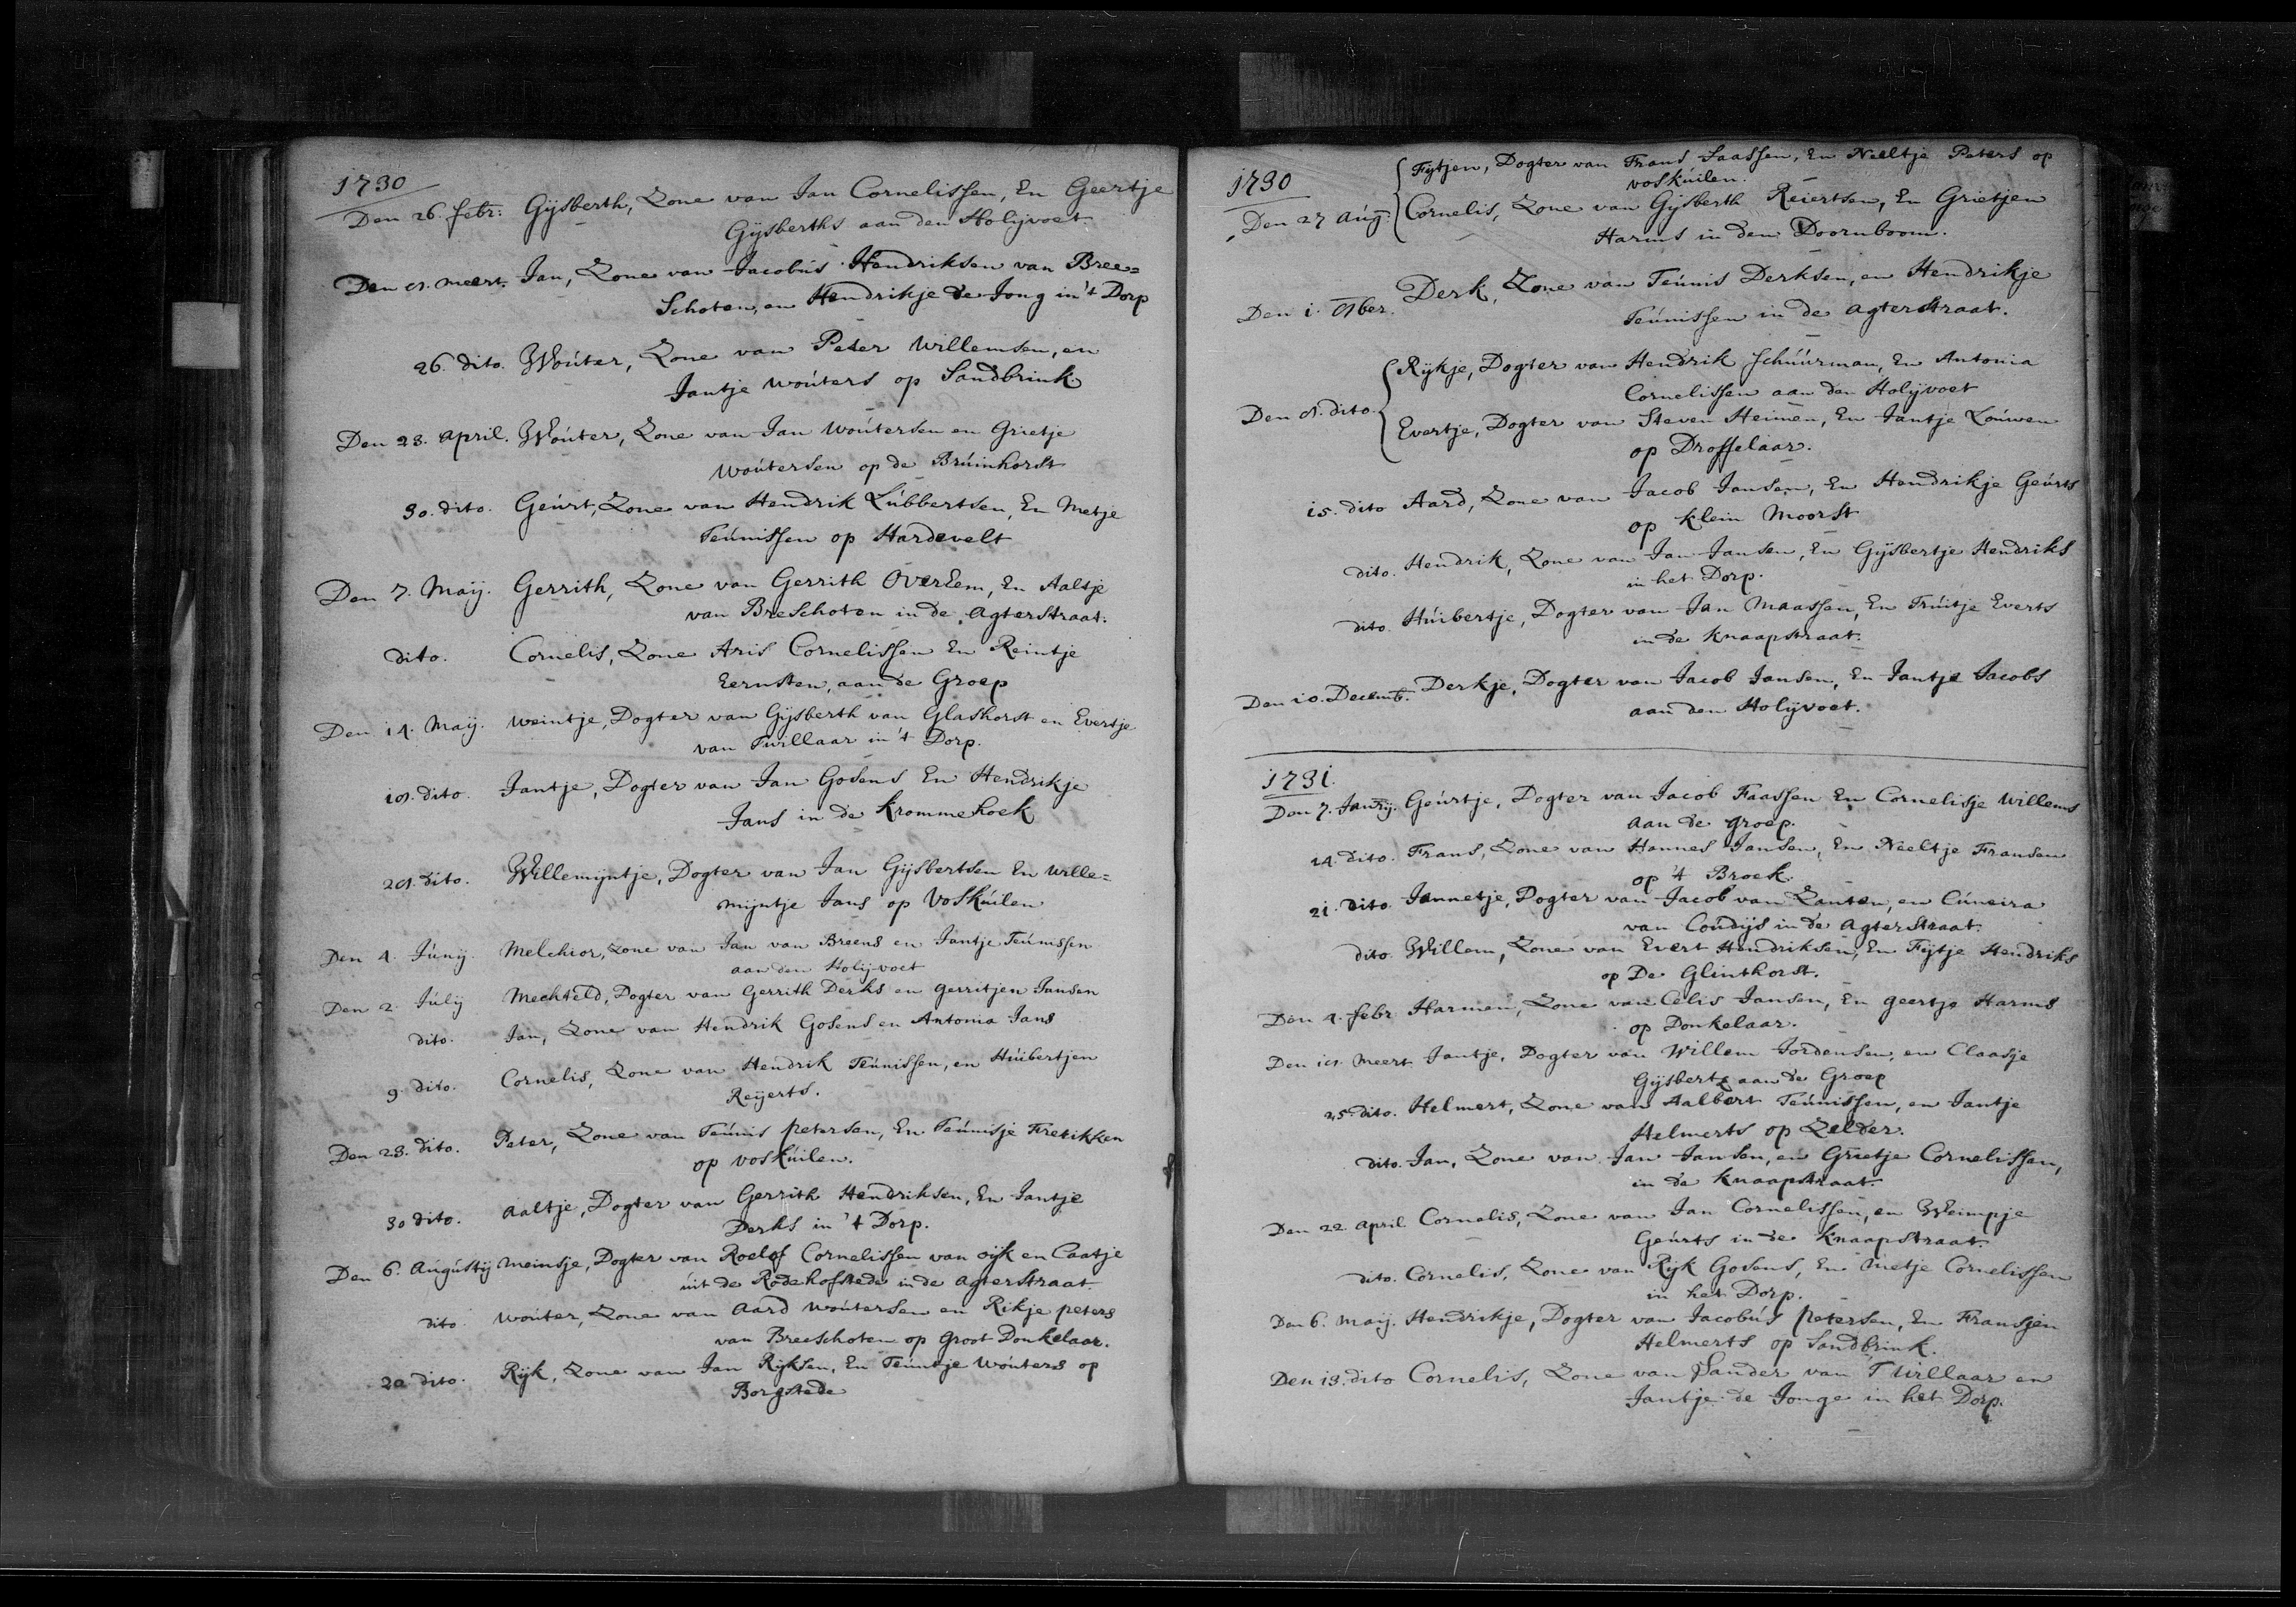 1730
Den 26. febr: Gijsberth, Zone van Jan Cornelissen, En Geertje
Gijsberths aan den Holijvoet
Den meert. Jan, Zone van Jacobús Hendriksen van Bree=
Schoten, en Hendrikje de Jong in 't Dorp
26. dito. Woúter, Zone van Peter Willemsen, en
Jantje woúters op Sandbrink.
Den 23. april. Woúter, Zone van Jan Woútersen en Grietje
Woútersen op de Brúinhorst
30. dito. Geúrt, Zone van Hendrik Lúbbertsen, En Metje
Teúnissen op Hardevelt
Den 7. Maij. Gerrith, Zone van Gerrith OverEem, En Aaltje
van BreSchoten in de Agterstraat.
dito. Cornelis, Zone Aris Cornelissen En Reintje
Eernsten, aan de Groep
Den 14. Maij. Weintje, Dogter van Gijsberth van Glashorst en Evertje
van Twillaar in 't Dorp.
dito. Jantje, Dogter van Jan Gosens En Hendrikje
Jans in de Krommehoek
dito. Willemijntje, Dogter van Jan Gijsbertsen En Wille=
mijntje Jans op Voskúilen
Den 4. Júnij. Melchior, Zone van Jan van Breens en Jantje Teúnissen
aan den Holijvoet
Den 2. Júlij Mechteld, Dogter van Gerrith Derks en gerritjen Jansen
dito. Jan, Zone van Hendrik Gosens en Antonia Jans
9. dito. Cornelis, Zone van Hendrik Teúnissen, en Húibertjen
Reijerts.
Den 23. dito. Peter, Zone van Teúnis petersen, En Teúnisje Frerikken
op voskúilen.
30 dito. Aaltje, Dogter van Gerrith Hendriksen, En Jantje
Derks in 't Dorp.
Den 6. Aúgústij Meinsje, Dogter van Roelof Cornelissen van oijk en Caatje
úit de Rodehofstede in de agterstraat.
dito. Woúter, Zone van Aard Woútersen en Rikje peters
van Breeschoten op groot Donkelaar.
20 dito. Rijk, Zone van Jan Rijksen, En Teúntje Woúters op
Borgstede
1730
Fijtjen, Dogter van Frans Saassen, En Neeltje Peters op
voskúilen.
Den 27 Aúg: Cornelis, Zone van Gijsberth Reiertsen, En Grietjen
Harms in den Doornboom.
Den 1. Derk, Zone van Teúnis Derksen, en Hendrikje
Teúnissen in de Agterstraat.
Rijkje, Dogter van Hendrik Schúúrman, En Antonia
Cornelissen aan den Holijvoet
Den dito Evertje, Dogter van Steven Heimen, En Jantje Loúwen
op Drosselaar.
15. dito Aard, Zone van Jacob Jansen, En Hendrikje Geúrts
op Klein Moorst
dito. Hendrik, Zone van Jan Jansen, En Gijsbertje Hendriks
in het Dorp.
dito. Húibertje, Dogter van Jan Maassen, En Trúitje Everts
in de Knaapstraat.
Den 10. Decemb. Derkje, Dogter van Jacob Jansen, En Jantje Jacobs
aan den Holijvoet.
1731.
Den 7. Janrij. Geúrtje, Dogter van Jacob Faassen En Cornelisje Willems
aan de groep.
14. dito. Frans, Zone van Hannes Jansen, En Neeltje Fransen
op 't Broek.
21. dito Jannetje, Dogter van Jacob van Zanten, en Cúneira
van Coudijs in de Agterstraat.
dito. Willem, Zone van Evert Hendriksen, En Fijtje Hendriks
op De Glinthorst.
Den 4. febr Harmen, Zone van Celis Jansen, En geertje Harms
op Donkelaar.
Den meert Jantje, Dogter van Willem Jordensen, en Claasje
Gijsberts aan de Groep
25. dito. Helmert, Zone van Aalbert Teúnissen, en Jantje
Helmerts op Zelder.
dito. Jan, Zone van Jan Jansen, en Grietje Cornelissen,
in de Knaapstraat.
Den 22. April Cornelis, Zone van Jan Cornelissen, en Weimpje
Geúrts in de Knaapstraat.
dito. Cornelis, Zone van Rijk Gosens, En Metje Cornelissen
in het Dorp.
Den 6. Maij. Hendrikje, Dogter van Jacobús petersen, En Fransjen
Helmerts op Sandbrink.
Den 13. dito Cornelis, Zone van Sander van Twillaar en
Jantje de Jonge in het Dorp.